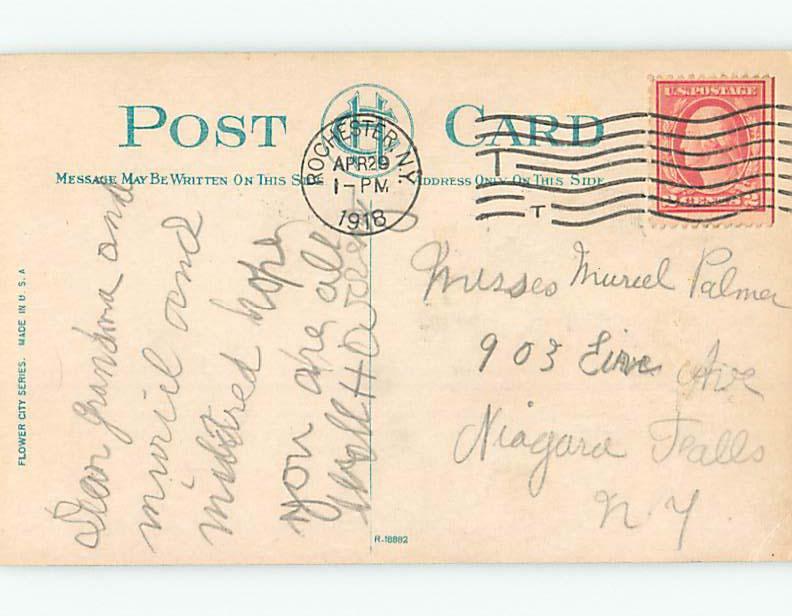 POST CARD
MESSAGE MAY BE WRITTEN ON THIS SIDE
ADDRESS ONLY ON THIS SIDE
ROCHESTER, N.Y.
APR 29
1-PM
1918
U.S. POSTAGE
2 CENTS 2
Dear grandma and
muriel and
mildred hope
you are all
well Howard
Misses Muriel Palmer
903 Ave
Niagara Falls
N.Y
FLOWER CITY SERIES. MADE IN U.S.A
R-18882